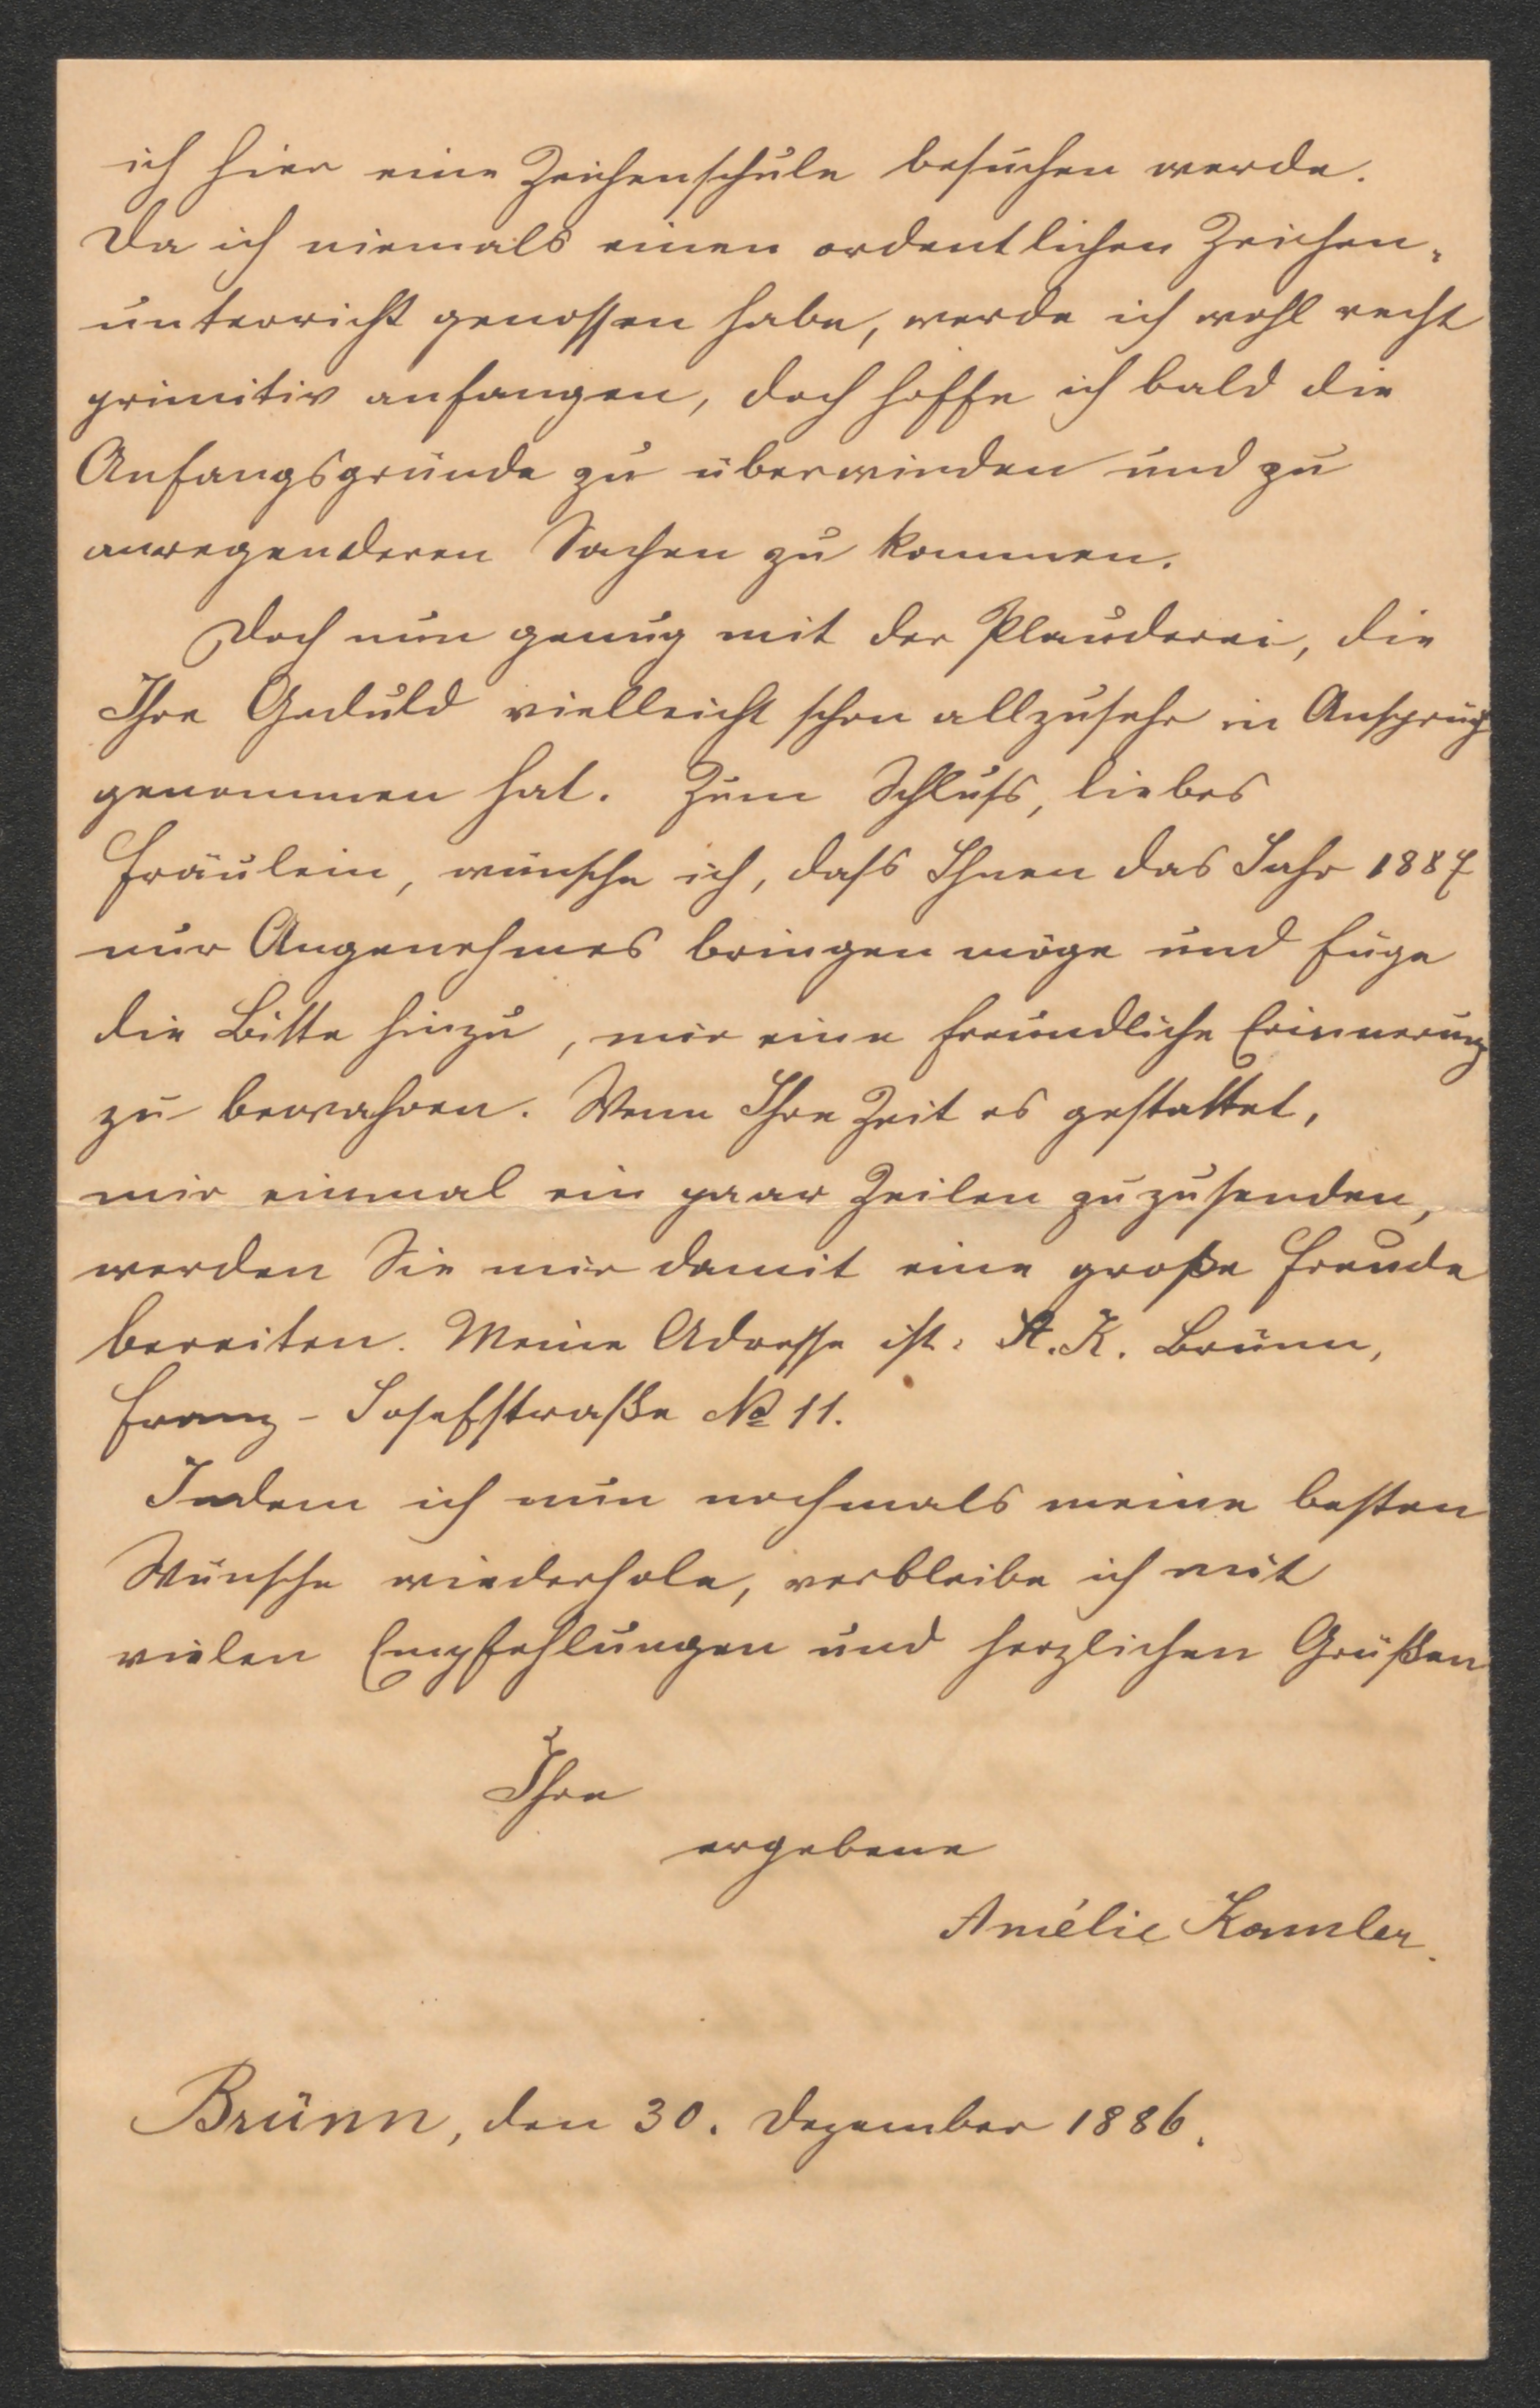 ich hier eine Zeichenschule besuchen werde.
Da ich niemals einen ordentlichen Zeichen-
unterricht genossen habe, werde ich wohl recht
primitiv anfangen, doch hoffe ich bald die
Anfangsgründe zu überwinden und zu
anregenderen Sachen zu kommen.
Doch nun genug mit der Plauderei, die
Ihre Geduld vielleicht schon allzusehr in Anspruch
genommen hat. Zum Schluss, liebes
Fräulein, wünsche ich, dass Ihnen das Jahr 1887
nur Angenehmes bringen möge und füge
die Bitte hinzu, mir eine freundliche Erinnerung
zu bewahren. Wenn Ihre Zeit es gestattet,
mir einmal ein paar Zeilen zuzusenden,
werden Sie mir damit eine große Freude
bereiten. Meine Adresse ist: A. K. Brünn,
Franz-Josefstraße № 11.
Indem ich nun nochmals meine besten
Wünsche wiederhole, verbleibe ich mit
vielen Empfehlungen und herzlichen Grüßen
Ihre
ergebene
Amélie Kamler.
Brünn, den 30. Dezember 1886.